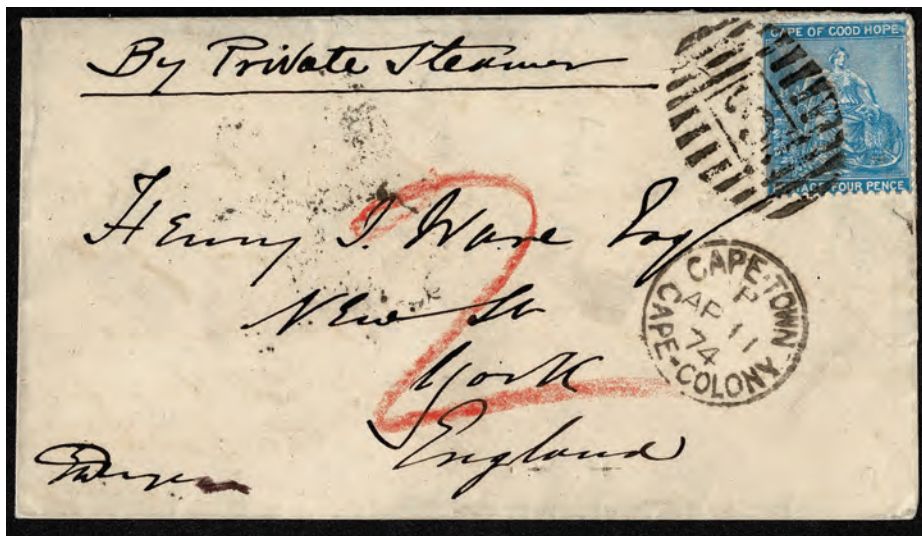 By Private Steamer
CAPE OF GOOD HOPE
POSTAGE FOUR PENCE
Henry I. Ware Esq
New St
York
England
2
CAPE-TOWN
P
AP 11
74
CAPE-COLONY